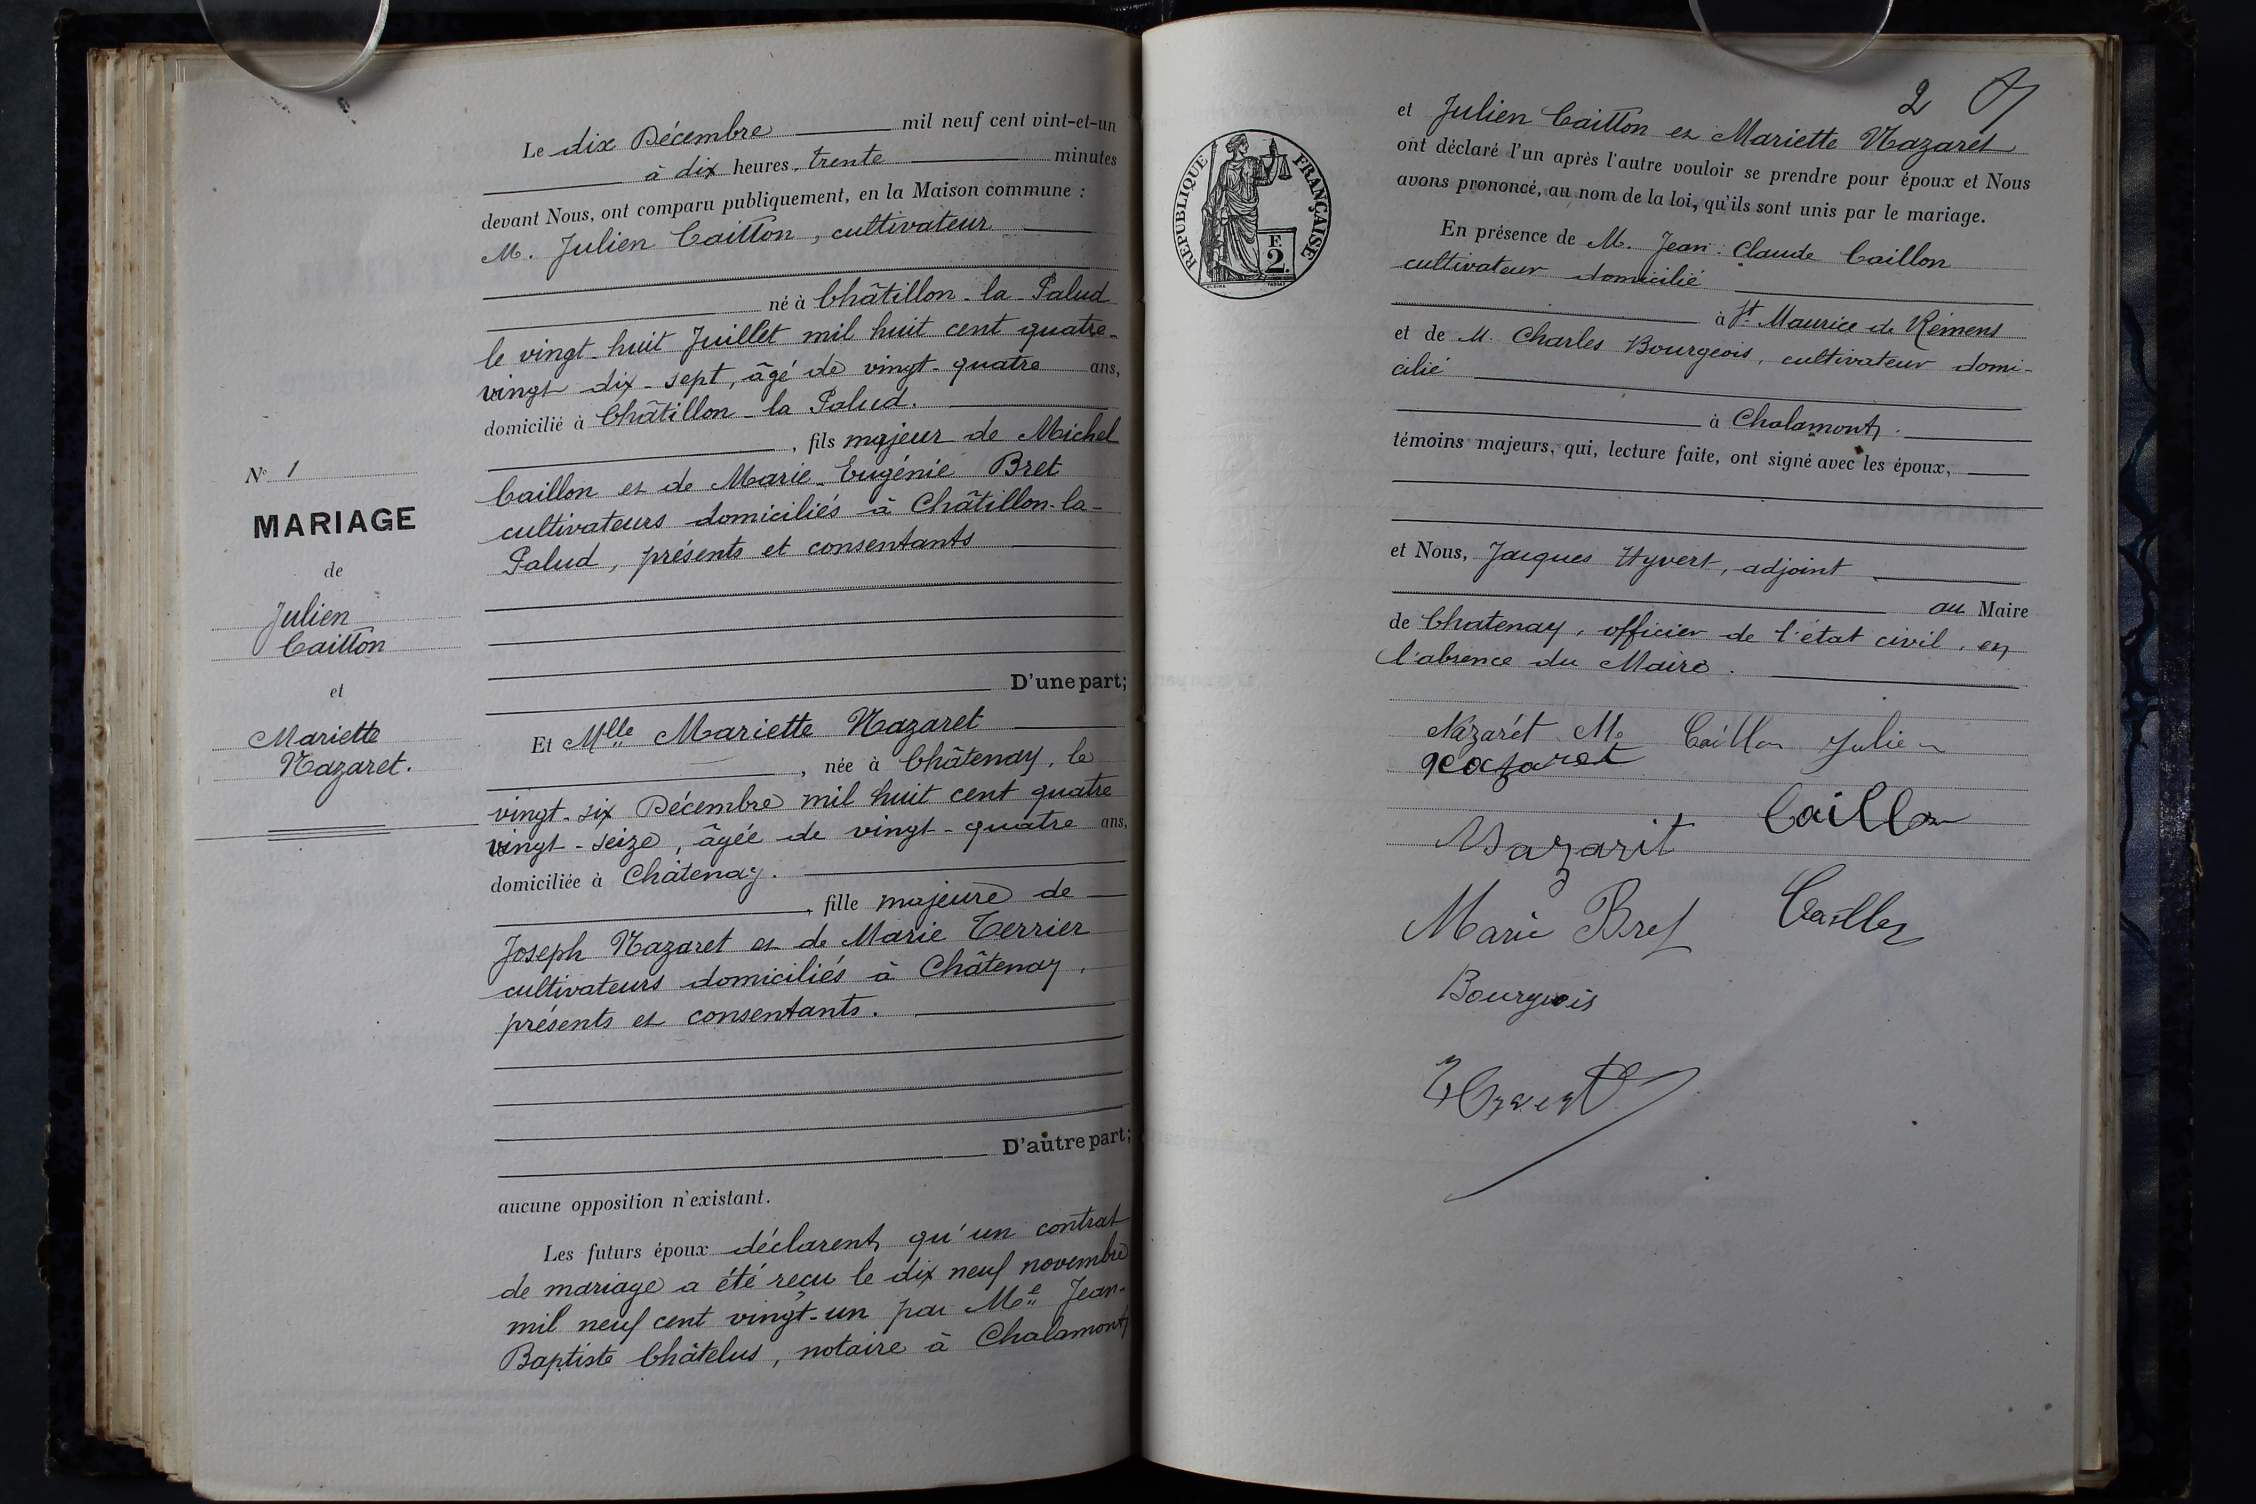 Le dix Décembre mil neuf cent vint-et-un
à dix heures, trente minutes
devant Nous, ont comparu publiquement, en la Maison commune :
M. Julien Caillon, cultivateur
né à Châtillon-la-Palud
le vingt-huit Juillet mil huit cent quatre-
vingt dix-sept, âgé de vingt-quatre ans,
domicilié à Châtillon-la Palud.
, fils majeur de Michel
Caillon et de Marie-Eugénie Bret
cultivateurs domiciliés à Châtillon-la-
Palud, présents et consentants
D'une part;
Et Mlle Mariette Nazaret
, née à Châtenay, le
vingt-six Décembre mil huit cent quatre
vingt-seize, âgée de vingt-quatre ans,
domiciliée à Châtenay.
, fille majeure de
Joseph Nazaret et de Marie Terrier
cultivateurs domiciliés à Châtenay,
présents et consentants.
D'autre part;
aucune opposition n'existant.
Les futurs époux déclarent qu'un contrat
de mariage a été reçu le dix neuf novembre
mil neuf cent vingt-un par Me Jean-
Baptiste Châtelus, notaire à Chalamont
No 1
MARIAGE
de
Julien
Caillon
et
Mariette
Nazaret.
2
RÉPUBLIQUE FRANÇAISE
F.
2.
et Julien Caillon et Mariette Nazaret
ont déclaré l'un après l'autre vouloir se prendre pour époux et Nous
avons prononcé, au nom de la loi, qu'ils sont unis par le mariage.
En présence de M. Jean-Claude Caillon
cultivateur domicilié
à St Maurice de Rémens
et de M. Charles Bourgeois, cultivateur domi-
cilié
à Chalamont.
témoins majeurs, qui, lecture faite, ont signé avec les époux,
et Nous, Jacques Hyvert, adjoint
au Maire
de Chatenay, officier de l'état civil, en
l'absence du Maire.
Nazarét M. Caillon Julien
Nazaret
Caillon
Nazarit
Marie Bret Caillon
Bourgeois
Hyvert